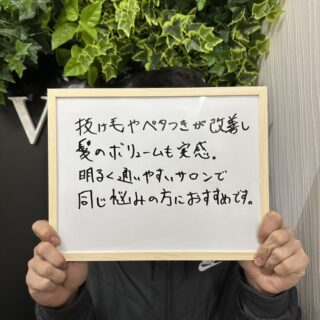 V
抜け毛やベタつきが改善し
髪のボリュームも実感。
明るく通いやすいサロンで
同じ悩みの方におすすめです。